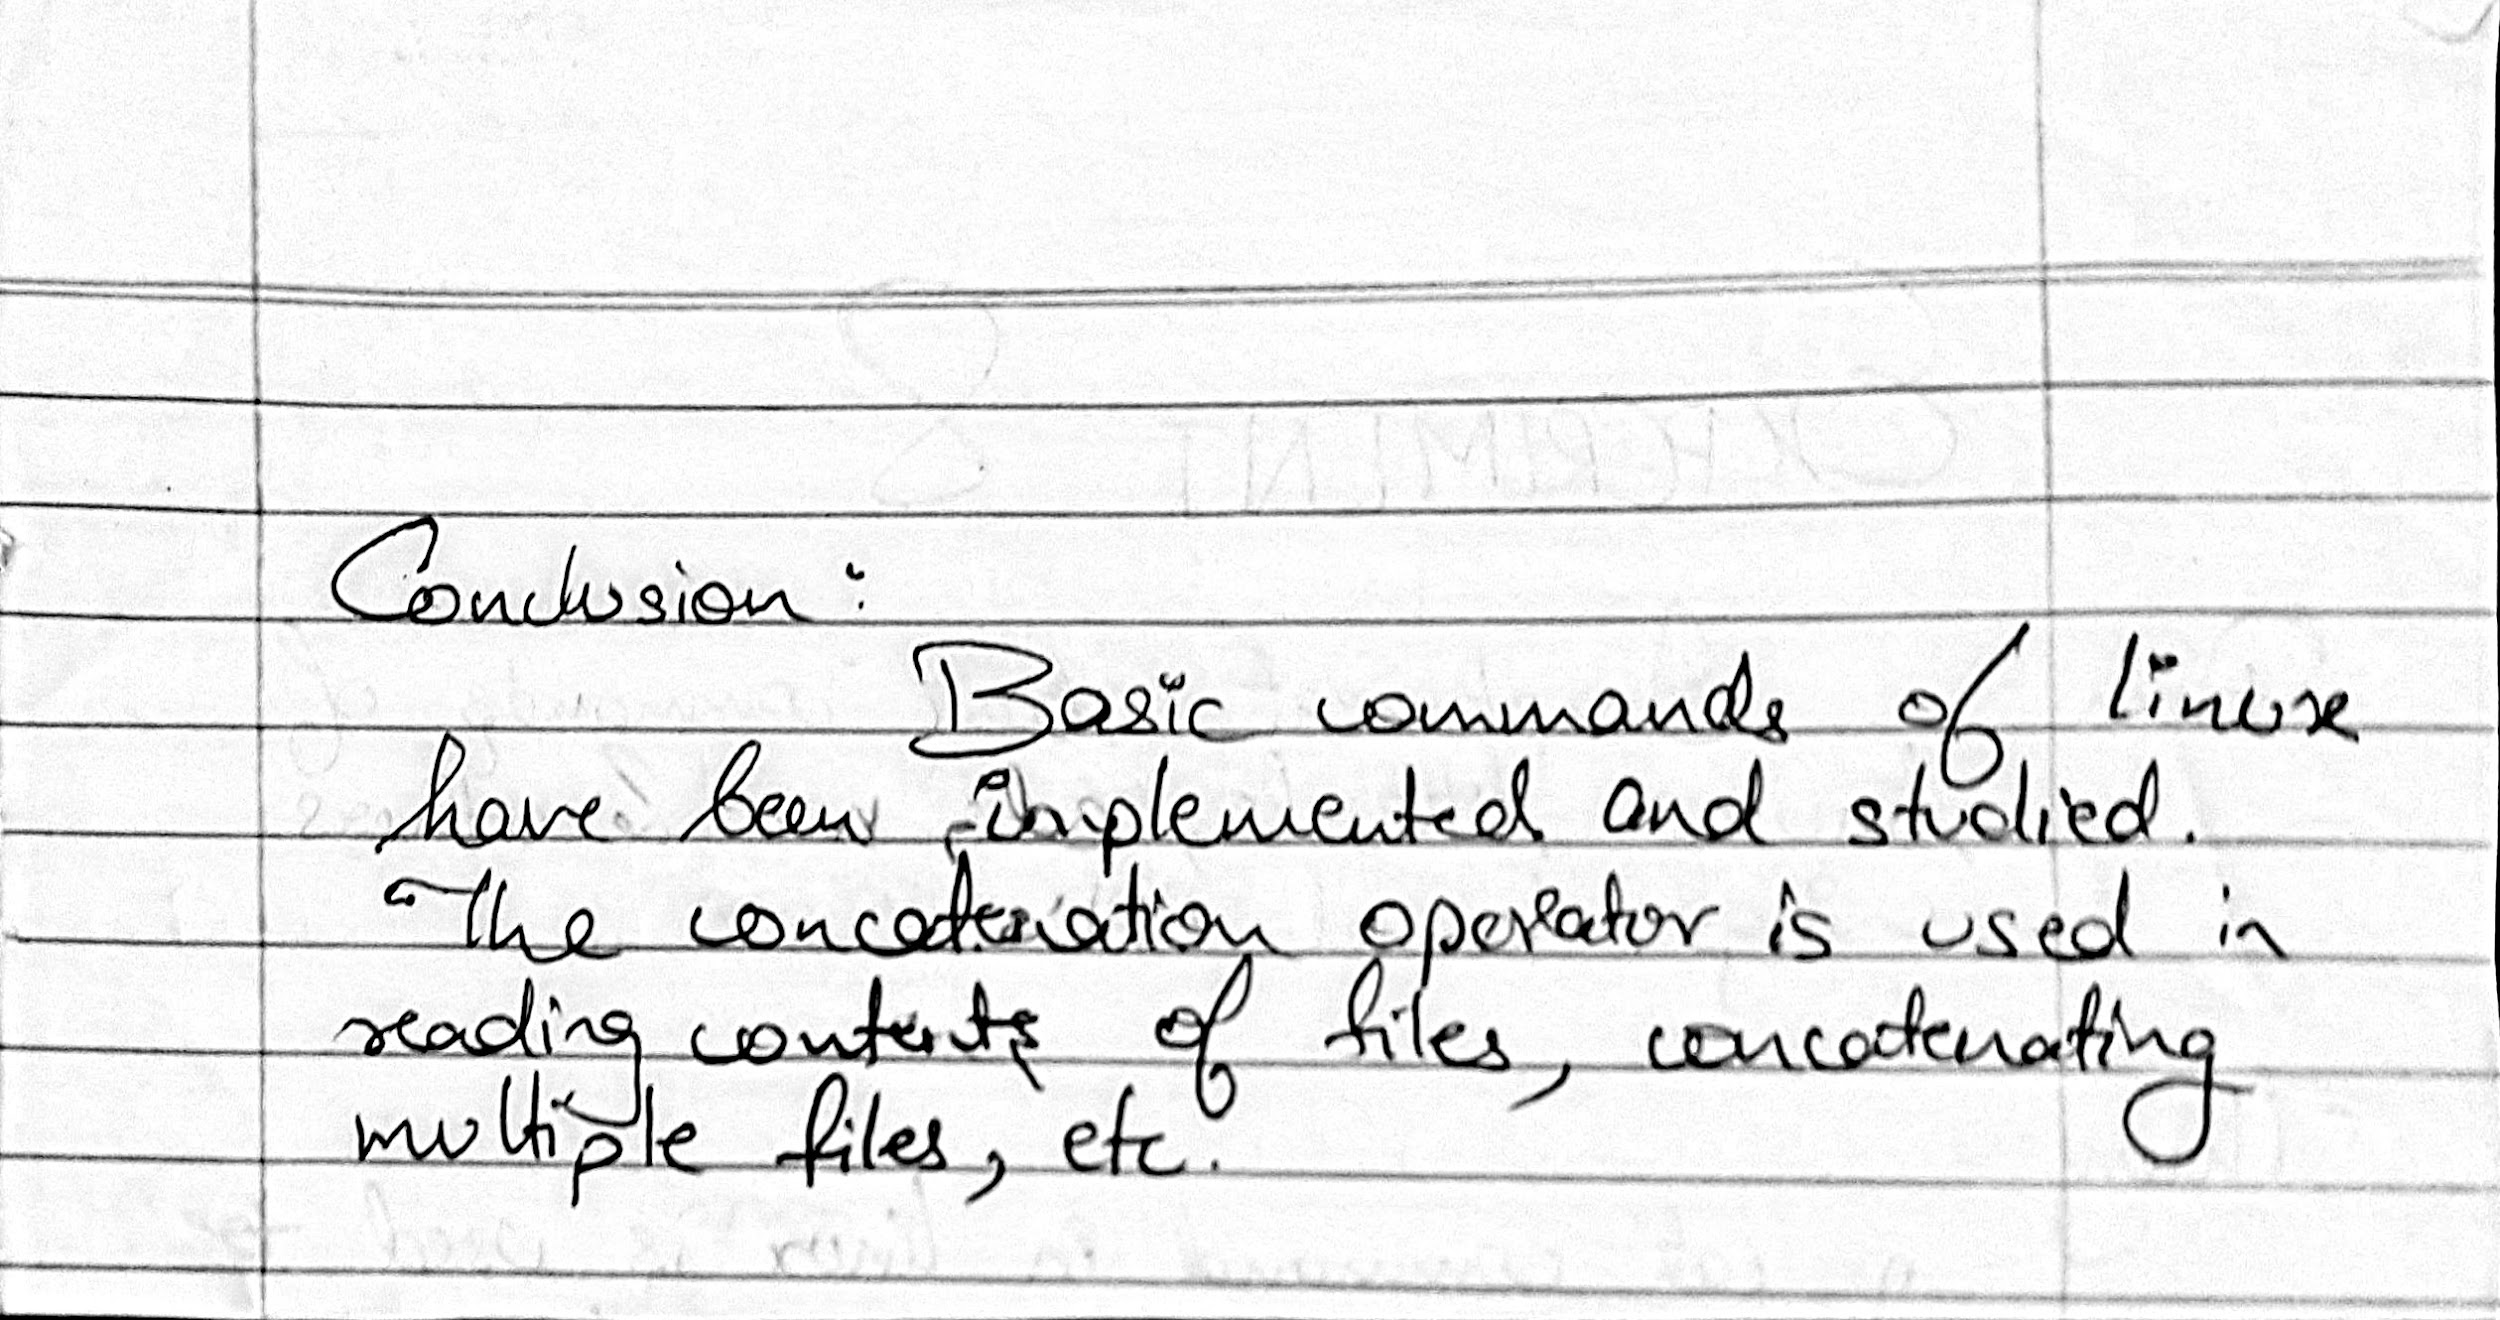 Conclusion:
Basic commands of linux
have been implemented and studied.
The concatenation operator is used in
reading contents of files, concatenating
multiple files, etc.